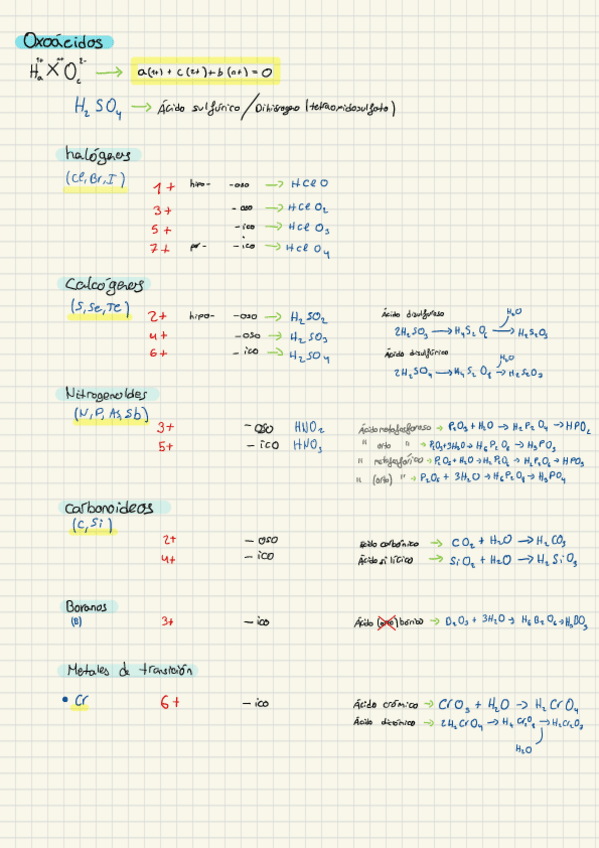 Oxoácidos
HₐXO꜀ → a(1+) + c(2-) + b(n+) = 0
H₂SO₄ → Ácido sulfúrico / Dihidrogeno (tetraoxidosulfato)
halógenos
(Cl, Br, I)
1+ hipo- -oso → HClO
3+ -oso → HClO₂
5+ -ico → HClO₃
7+ per- -ico → HClO₄
Calcógenos
(S, Se, Te)
2+ hipo- -oso → H₂SO₂
4+ -oso → H₂SO₃
6+ -ico → H₂SO₄
Ácido disulfuroso H₂O
2H₂SO₃ → H₄S₂O₆ → H₂S₂O₅
Ácido disulfúrico H₂O
2H₂SO₄ → H₄S₂O₈ → H₂S₂O₇
Nitrogenoides
(N, P, As, Sb)
3+ -oso HNO₂
5+ -ico HNO₃
Ácido metafosforoso → P₂O₃ + H₂O → H₂P₂O₄ → HPO₂
" orto " → P₂O₃ + 3H₂O → H₆P₂O₆ → H₃PO₃
" metafosfórico → P₂O₅ + H₂O → H₂P₂O₆ → H₂P₂O₆ → HPO₃
" (orto) " → P₂O₅ + 3H₂O → H₆P₂O₈ → H₃PO₄
carbonoideos
(C, Si)
2+ -oso
4+ -ico
ácido carbónico → CO₂ + H₂O → H₂CO₃
Ácido silícico → SiO₂ + H₂O → H₂SiO₃
Boranos
(B) 3+ -ico Ácido (orto) bórico → B₂O₃ + 3H₂O → H₆B₂O₆ → H₃BO₃
Metales de transición
• Cr 6+ -ico
Ácido crómico → CrO₃ + H₂O → H₂CrO₄
Ácido dicrómico → 2H₂CrO₄ → H₄Cr₂O₈ → H₂Cr₂O₇
H₂O